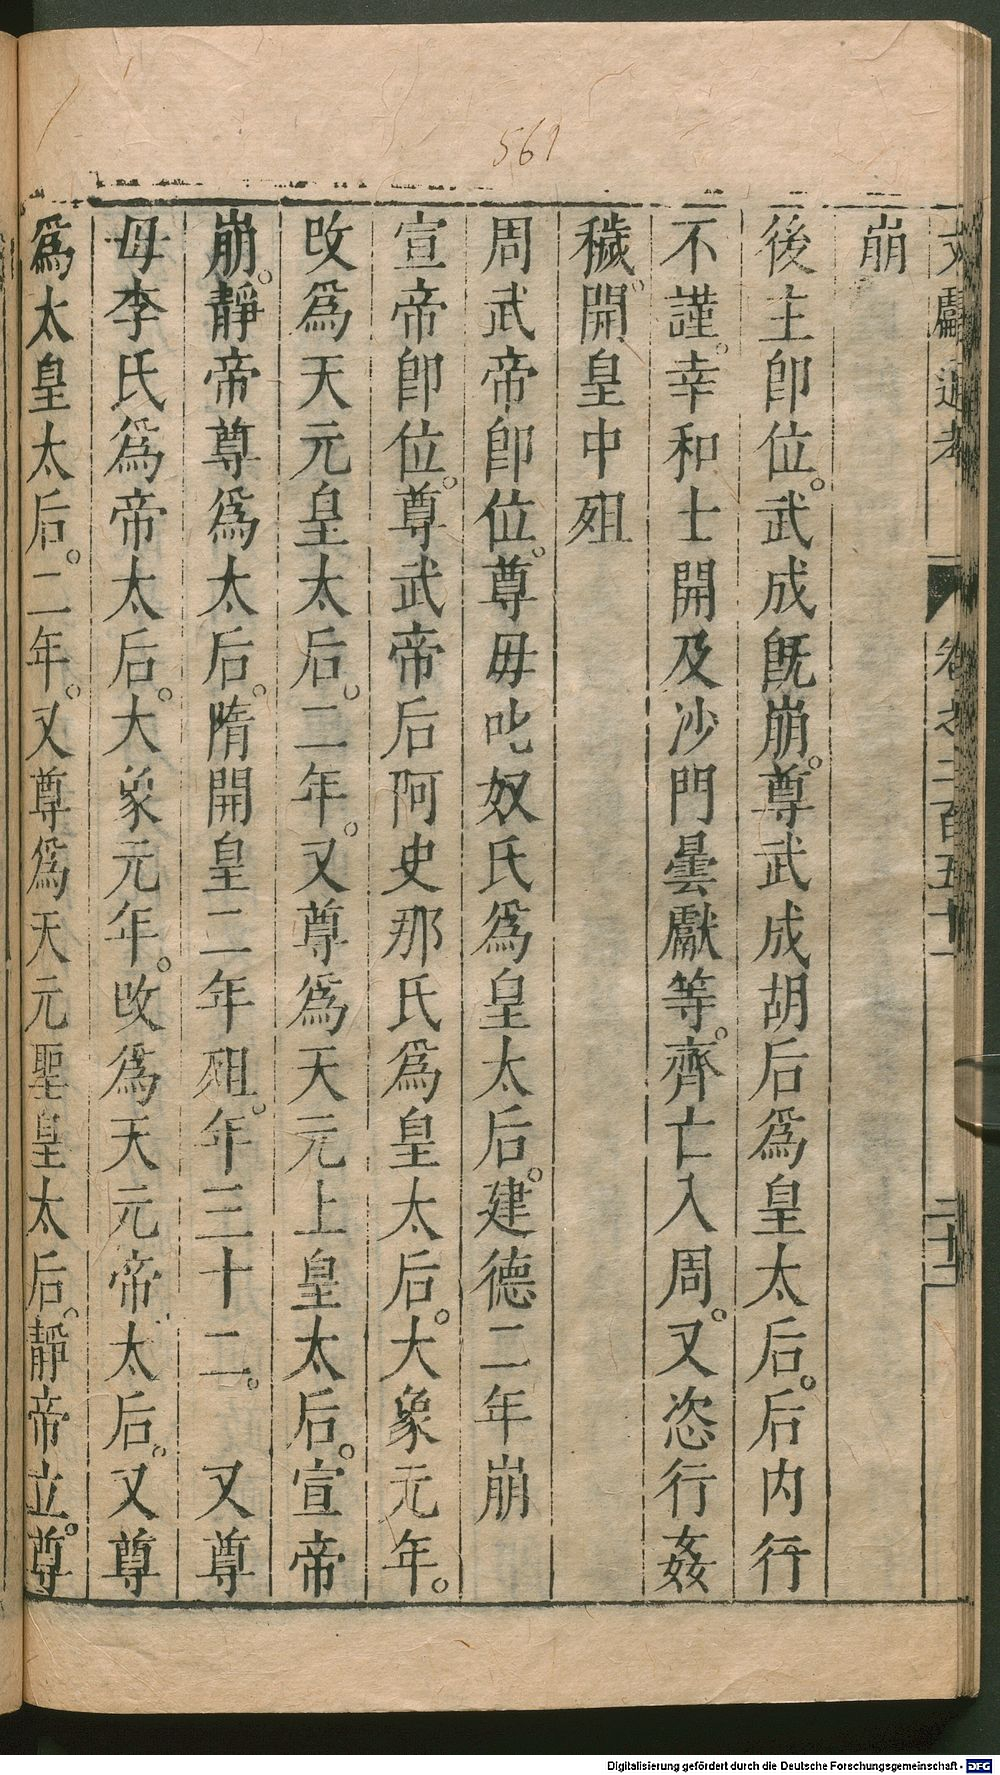 561
文獻通考 卷之二百五十一 二十三
崩
後主卽位。武成旣崩。尊武成胡后爲皇太后。后內行
不謹。幸和士開及沙門曇獻等。齊亡入周。又恣行姦
穢。開皇中殂
周武帝卽位。尊母叱奴氏爲皇太后。建德二年崩
宣帝卽位。尊武帝后阿史那氏爲皇太后。大象元年。
改爲天元皇太后。二年。又尊爲天元上皇太后。宣帝
崩。靜帝尊爲太后。隋開皇二年殂。年三十二。 又尊
母李氏爲帝太后。大象元年。改爲天元帝太后。又尊
爲太皇太后。二年。又尊爲天元聖皇太后。靜帝立。尊
Digitalisierung gefördert durch die Deutsche Forschungsgemeinschaft - DFG